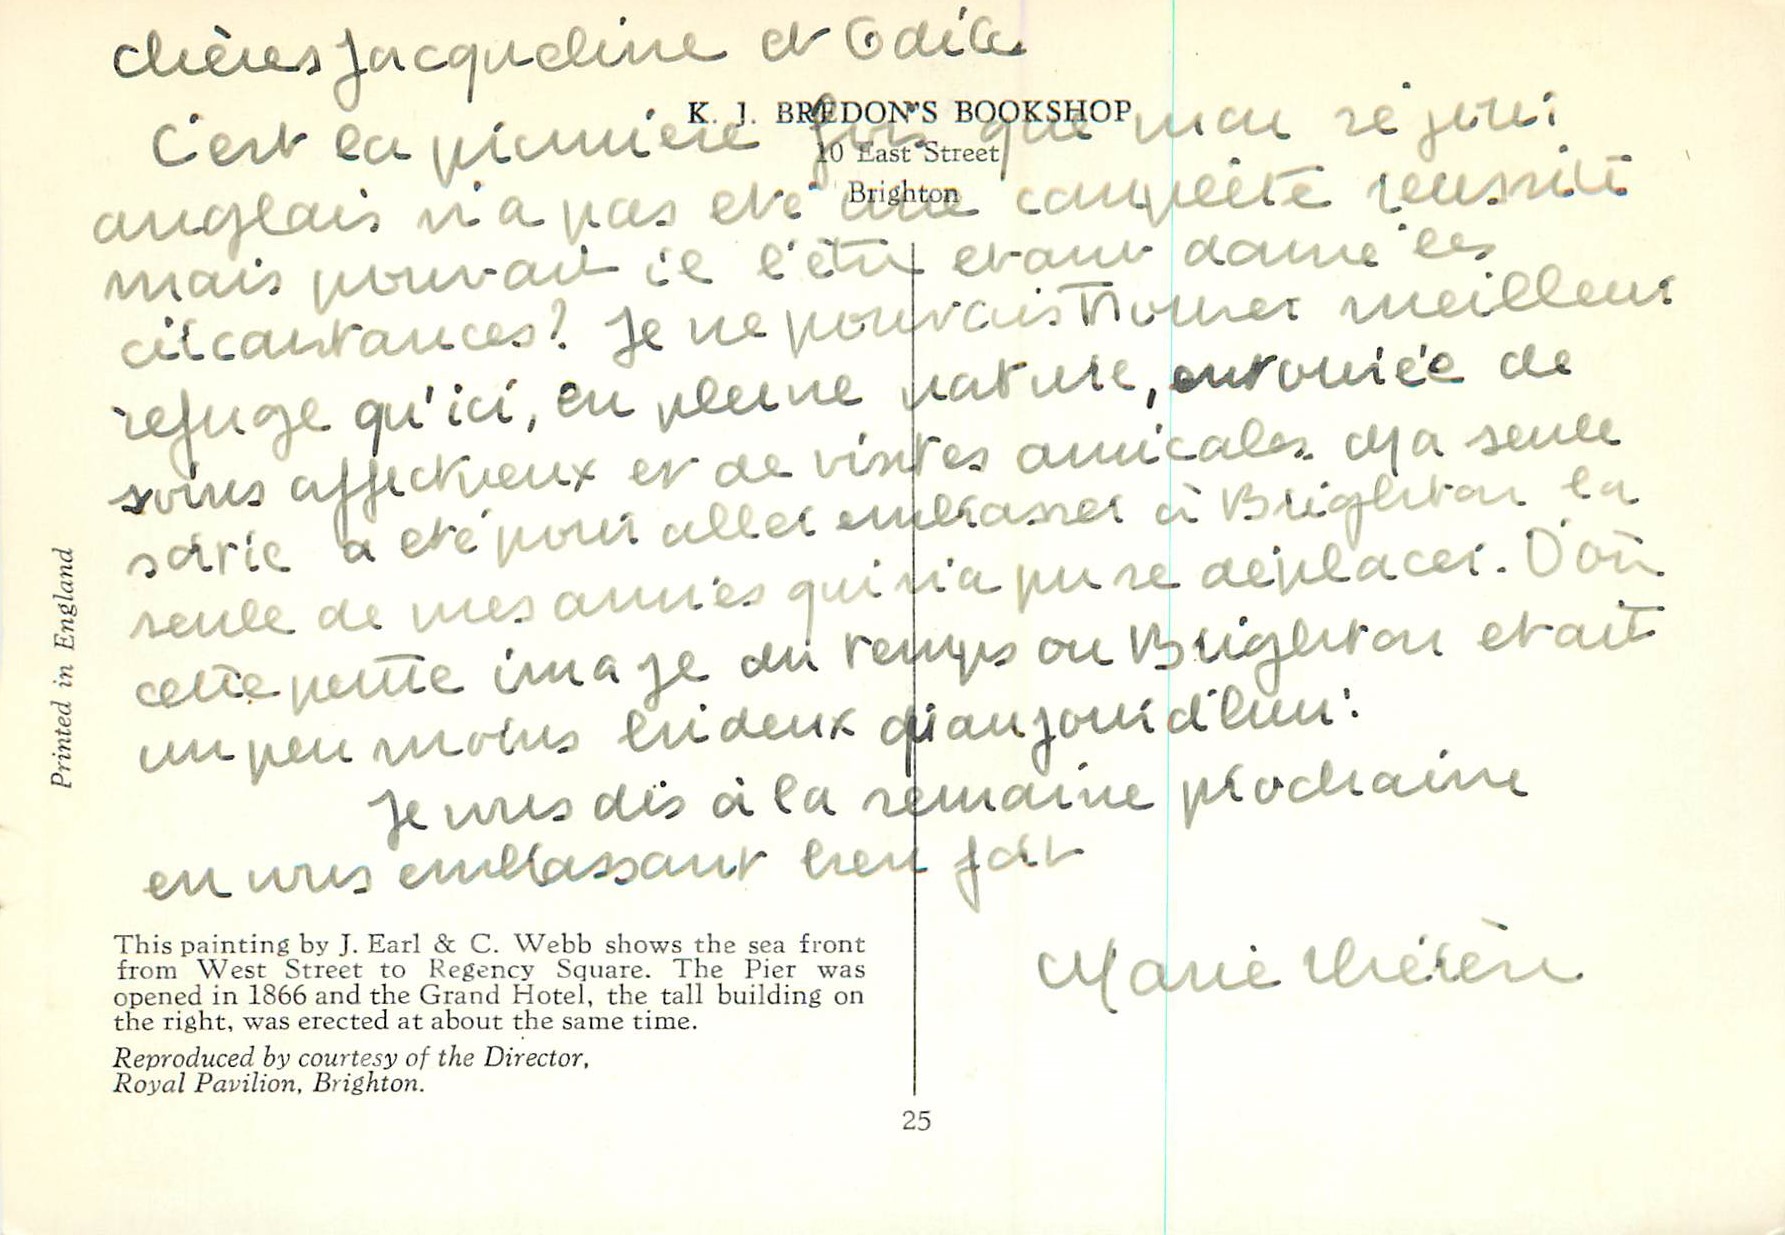 chères Jacqueline et Odile
K. J. BREDON'S BOOKSHOP
10 East Street
Brighton
C'est la première fois que mon séjour
anglais n'a pas été une complète réussite
mais pouvait il l'être etant donné les
circonstances? Je ne pouvais trouver meilleur
refuge qu'ici, en pleine nature, entourée de
soins affectueux et de visites amicales. Ma seule
sortie a eté pour aller embrasser à Brighton la
seule de mes amies qui n'a pu se déplacer. D'où
cette petite image du temps ou Brighton etait
un peu moins hideux qu'aujourd'hui.
Je vous dis à la semaine prochaine
en vous embrassant bien fort
Marie Thérèse
Printed in England
This painting by J. Earl & C. Webb shows the sea front
from West Street to Regency Square. The Pier was
opened in 1866 and the Grand Hotel, the tall building on
the right, was erected at about the same time.
Reproduced by courtesy of the Director,
Royal Pavilion, Brighton.
25